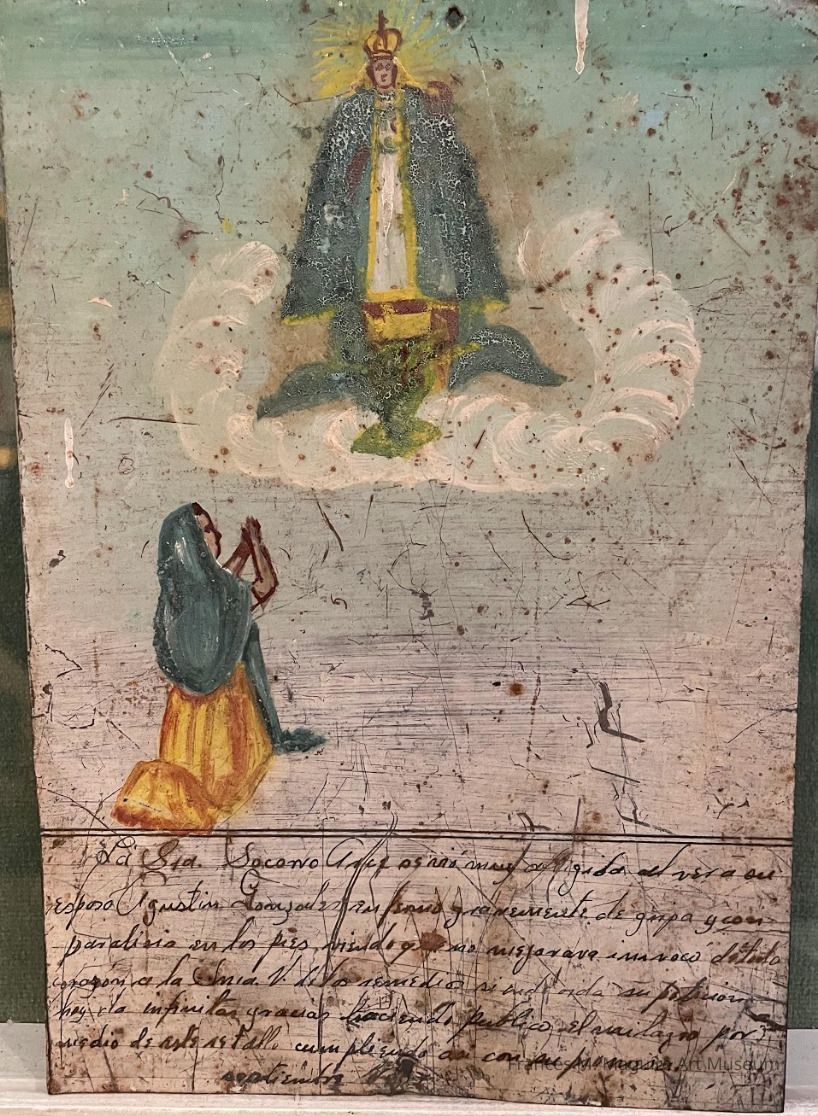 La Sra. Socorro Arce se vió muy afligida al ver a su
esposo Agustin Gonzalez enfermo gravemente de gripa y con
paralisis en los pies viendo que no mejorava invocó de todo
corazón a la Sma. V. de los remedios
hoy da infinitas gracias haciendo publico el milagro por
medio de este retablo cumpliendo asi con su promesa
septiembre
Frances M. Maguire Art Museum